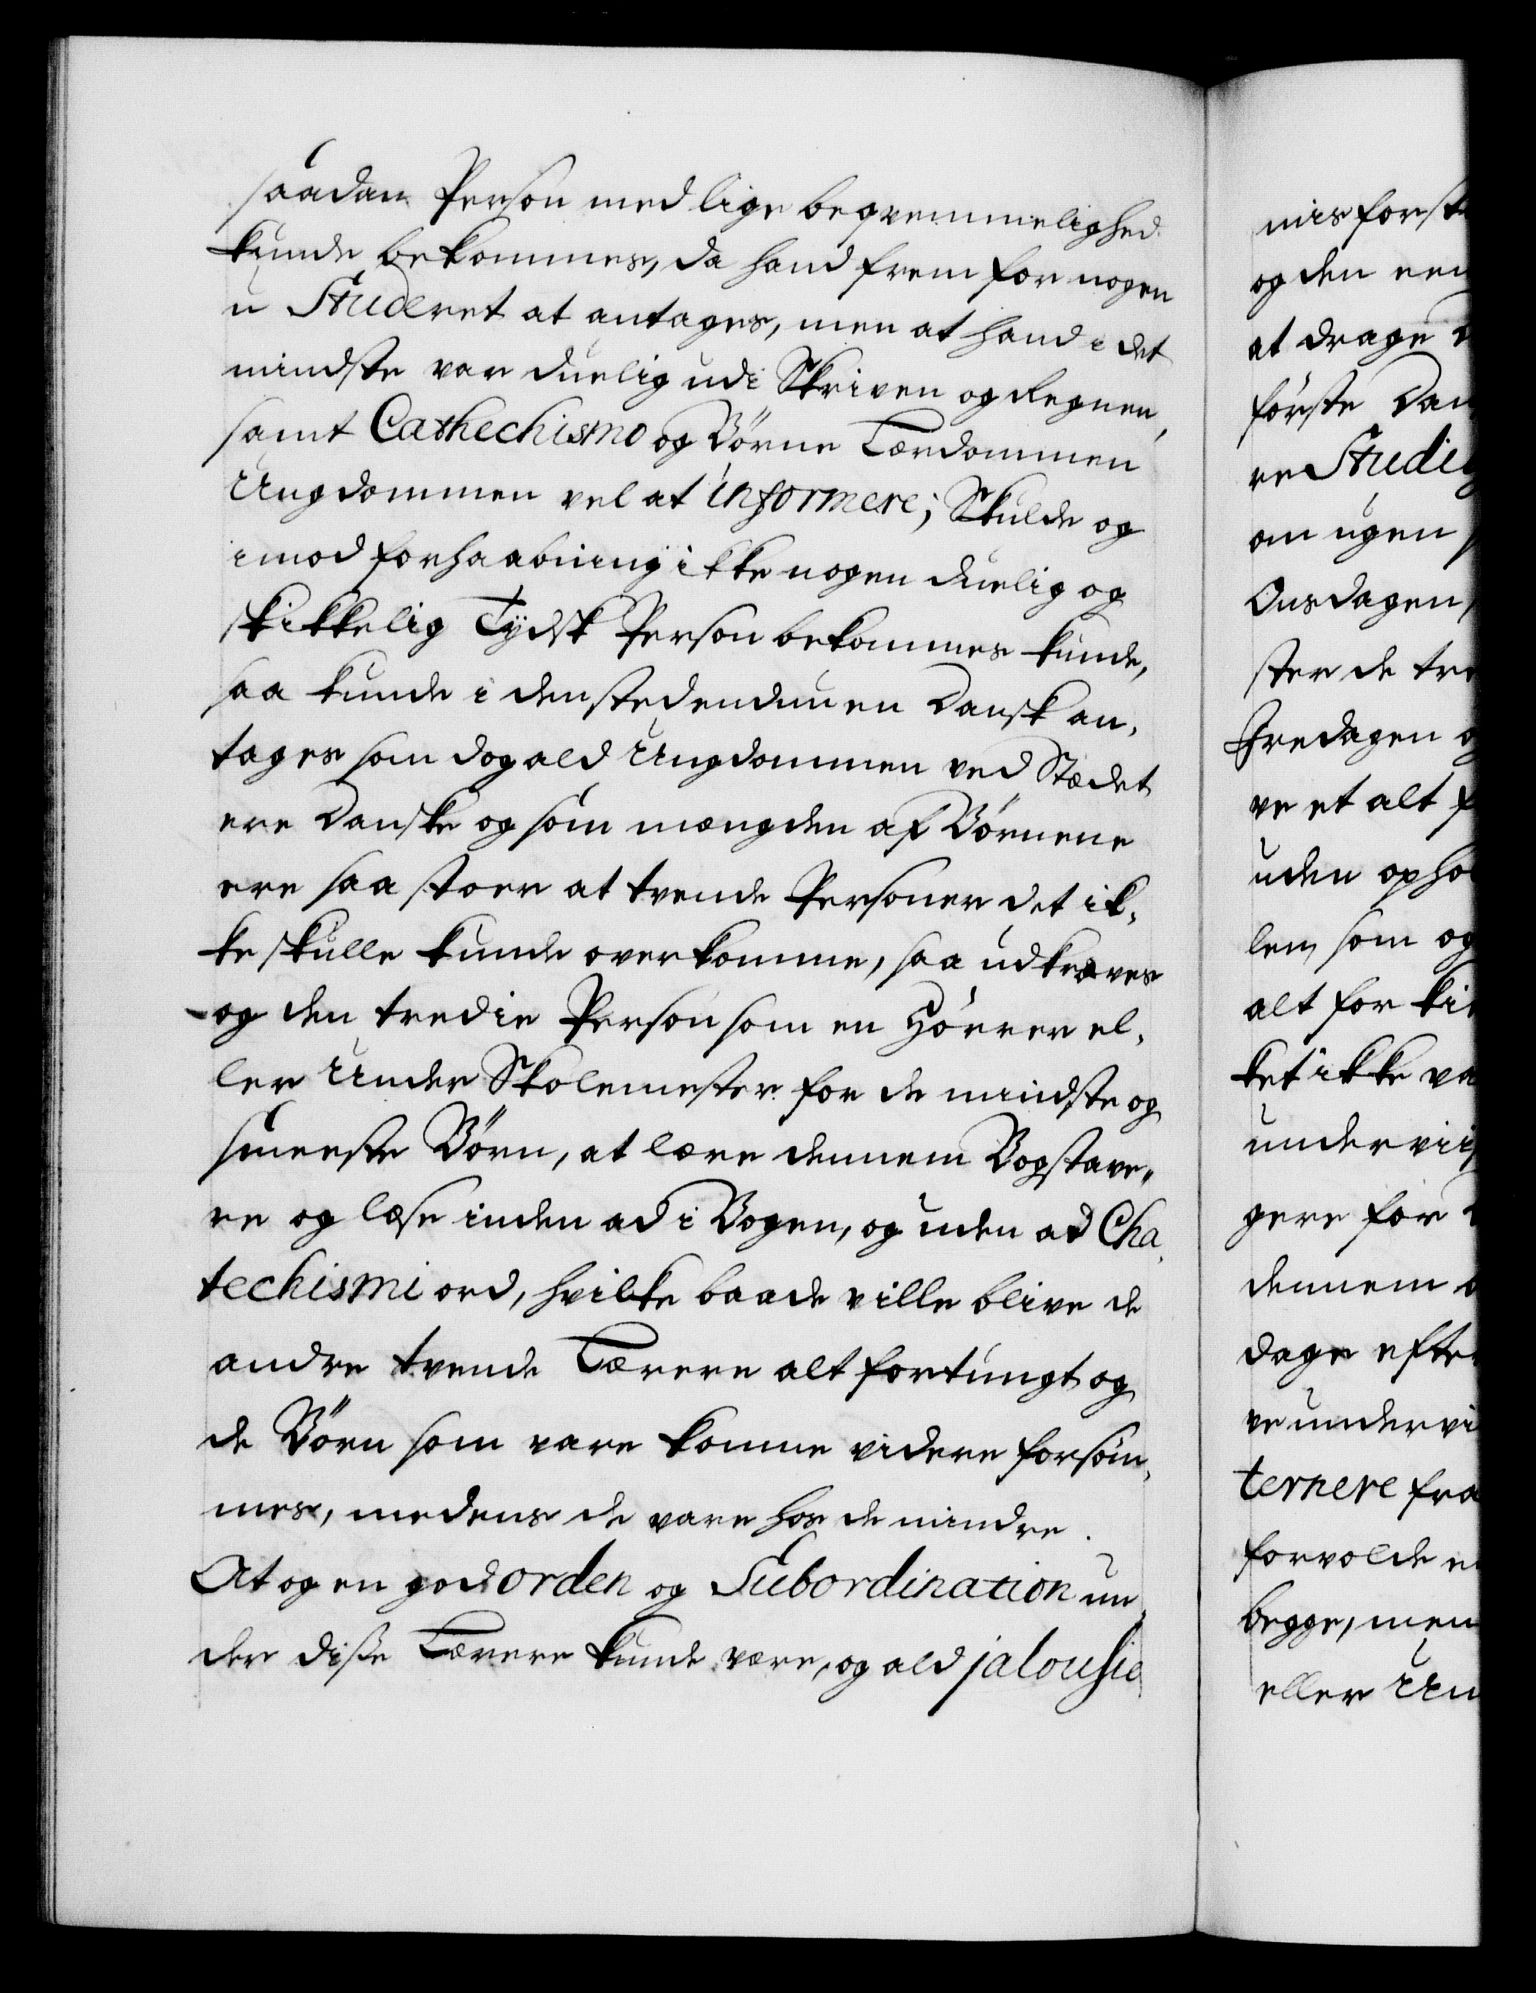 saadan Person med lige beqvemmelighed
kunde bekommes, da hand frem for nogen
u Studeret at antages, men at hand i det
mindste var duelig udi Skriven og Regnen,
samt Cathechismo og Børne Lærdommen
Ungdommen vel at informere; Skulde og
imod forhaabning ikke nogen duelig og
skikkelig Tydsk Person bekommes kunde,
saa kunde i den sted en Dansk an,
tages som dog ald Ungdommen ved Stædet
ere Danske og som mængden af Børnene
ere saa stoer at tvende Personer det ik,
ke skulle kunde overkomme, saa udkræves
og den tredie Person som en Hörrer el,
ler Under Skolemester for de mindste og
smerste Börn, at lære dennem Bogstave,,
re og læse inden ad i Bogen, og uden ad Cha,
techismi ord, hvilke baade ville blive de
andre tvende Lærere alt for tungt og
de Börn som vare komne videre forsöm,
mes, medens de vare hos de mindre.
At og en god orden og Subordination un,
der disse Lærere kunde være, og ald jalousie
misforst
og den een
at drage
første Dan
re Studi
om ugen
Onsdagen
ster de tre
Fredagen o
ve et alt f
uden opho
len, som og
alt for ki
ket ikke va
underviis
gere for
dennem
dage efter
ve undervi
ternere fra
forvolde
begge, men
eller Un